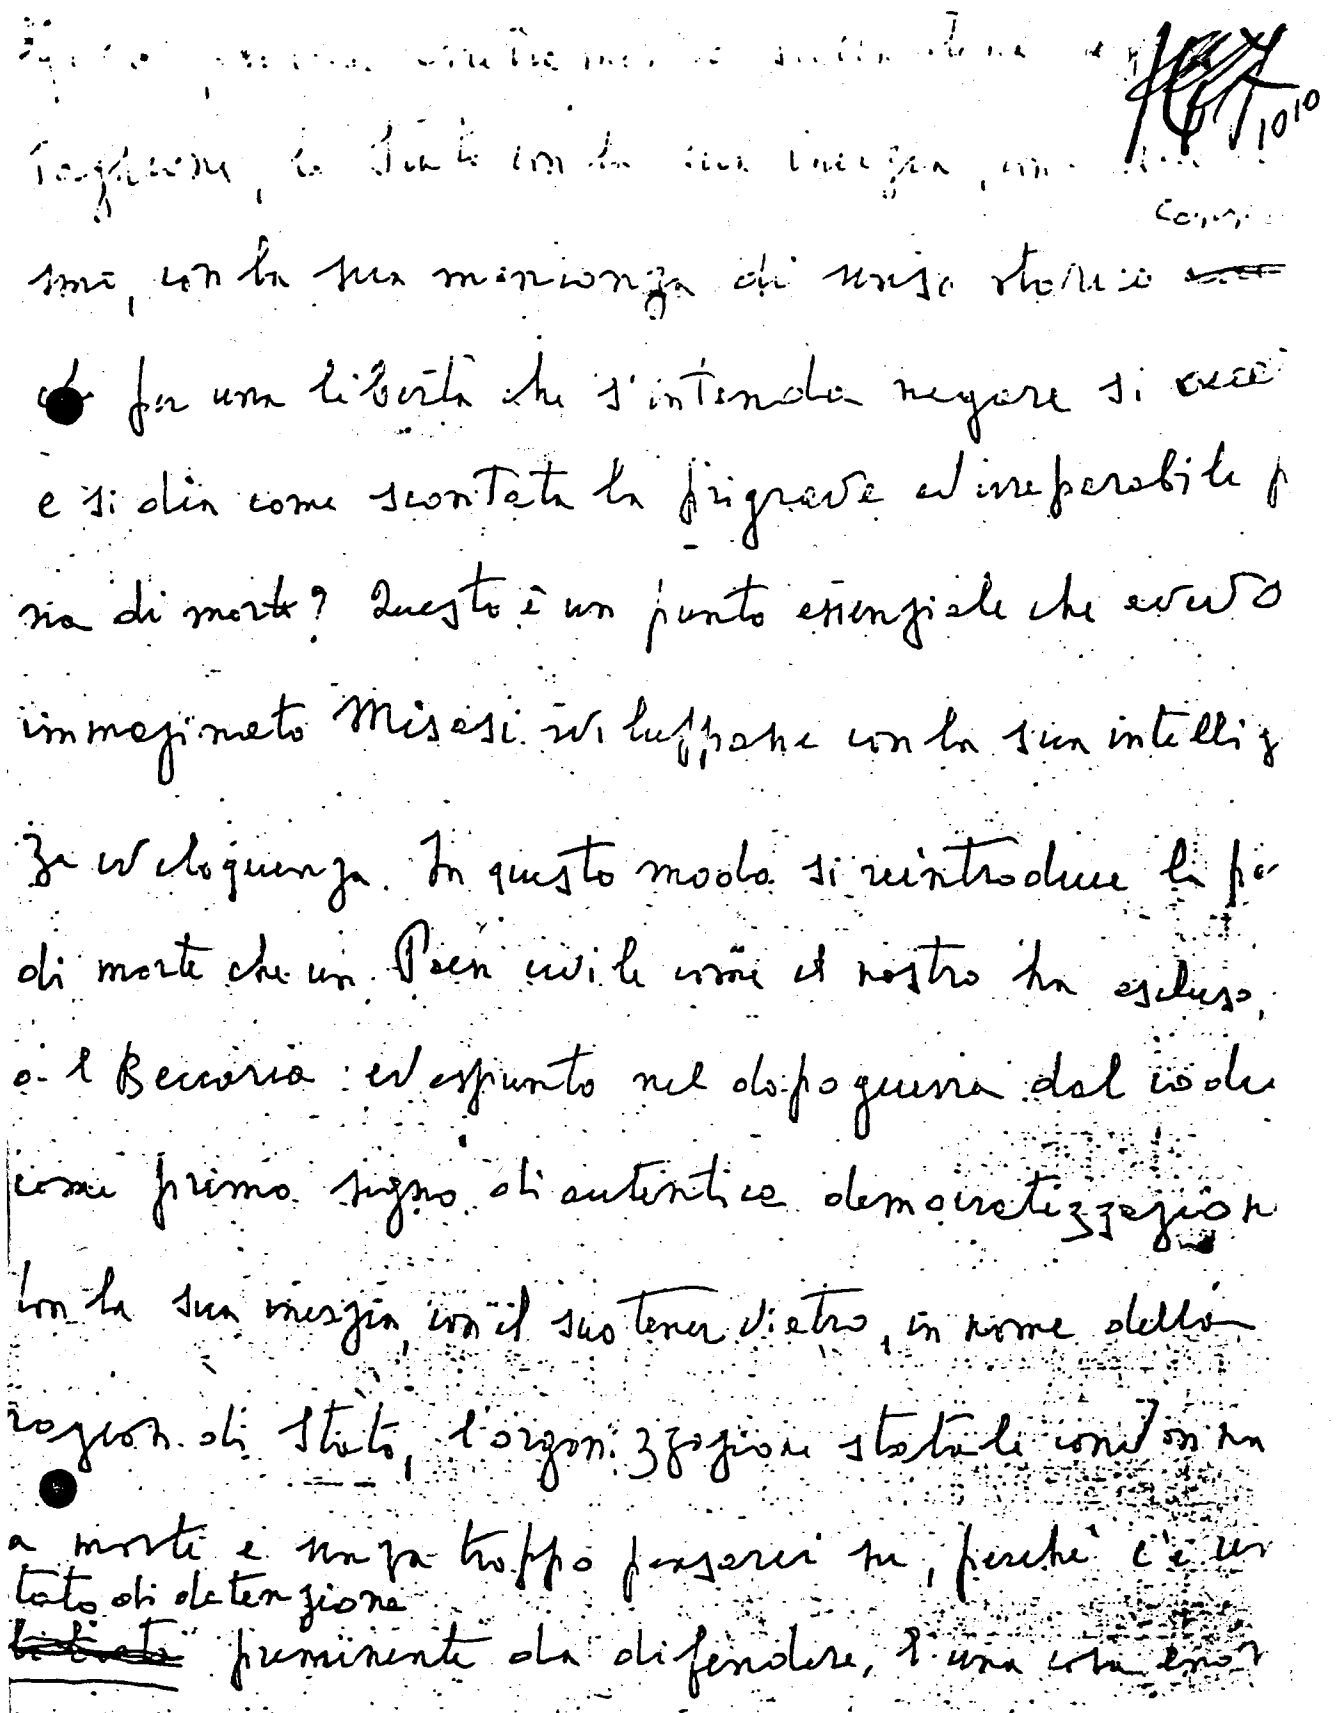 1010
con la sua inerzia, con
con
smo, con la sua mancanza di senso storico
ch per una libertà che s'intenda negare si acce
e si dia come scontata la più grave ed irreparabile p
na di morte? Questo è un punto essenziale che avevo
immaginato Misasi sviluppasse con la sua intellig
za ed eloquenza. In questo modo si reintroduce la pe
di morte che un Paese civile come il nostro ha escluso,
Beccaria ed espunto nel dopoguerra dal codic
come primo segno di autentica democratizzazion
Con la sua inerzia, con il suo tener dietro, in nome della
ragion di Stato, l'organizzazione statale condanna
a morte e senza troppo pensarci su, perché c'è un
tato di detenzione
preminente da difendere, è una cosa enor